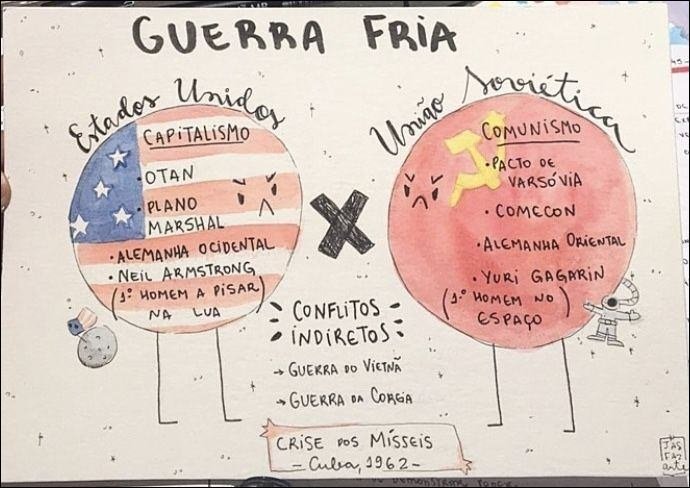 GUERRA FRIA
Estados Unidos
CAPITALISMO
• OTAN
• PLANO
MARSHAL
• ALEMANHA OCIDENTAL
• NEIL ARMSTRONG
(1º HOMEM A PISAR
NA LUA)
X
União Soviética
COMUNISMO
• PACTO DE
VARSÓVIA
• COMECON
• ALEMANHA ORIENTAL
• YURI GAGARIN
(1º HOMEM NO
ESPAÇO)
CONFLITOS
INDIRETOS
→ GUERRA DO VIETNÃ
→ GUERRA DA COREIA
CRISE DOS MÍSSEIS
- Cuba, 1962 -
JAS
FAZ
arte